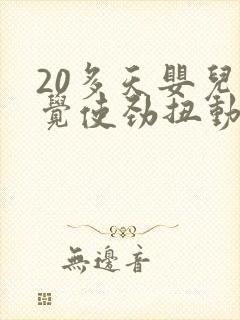 20多天嬰兒
覺使勁扭動
無邊音